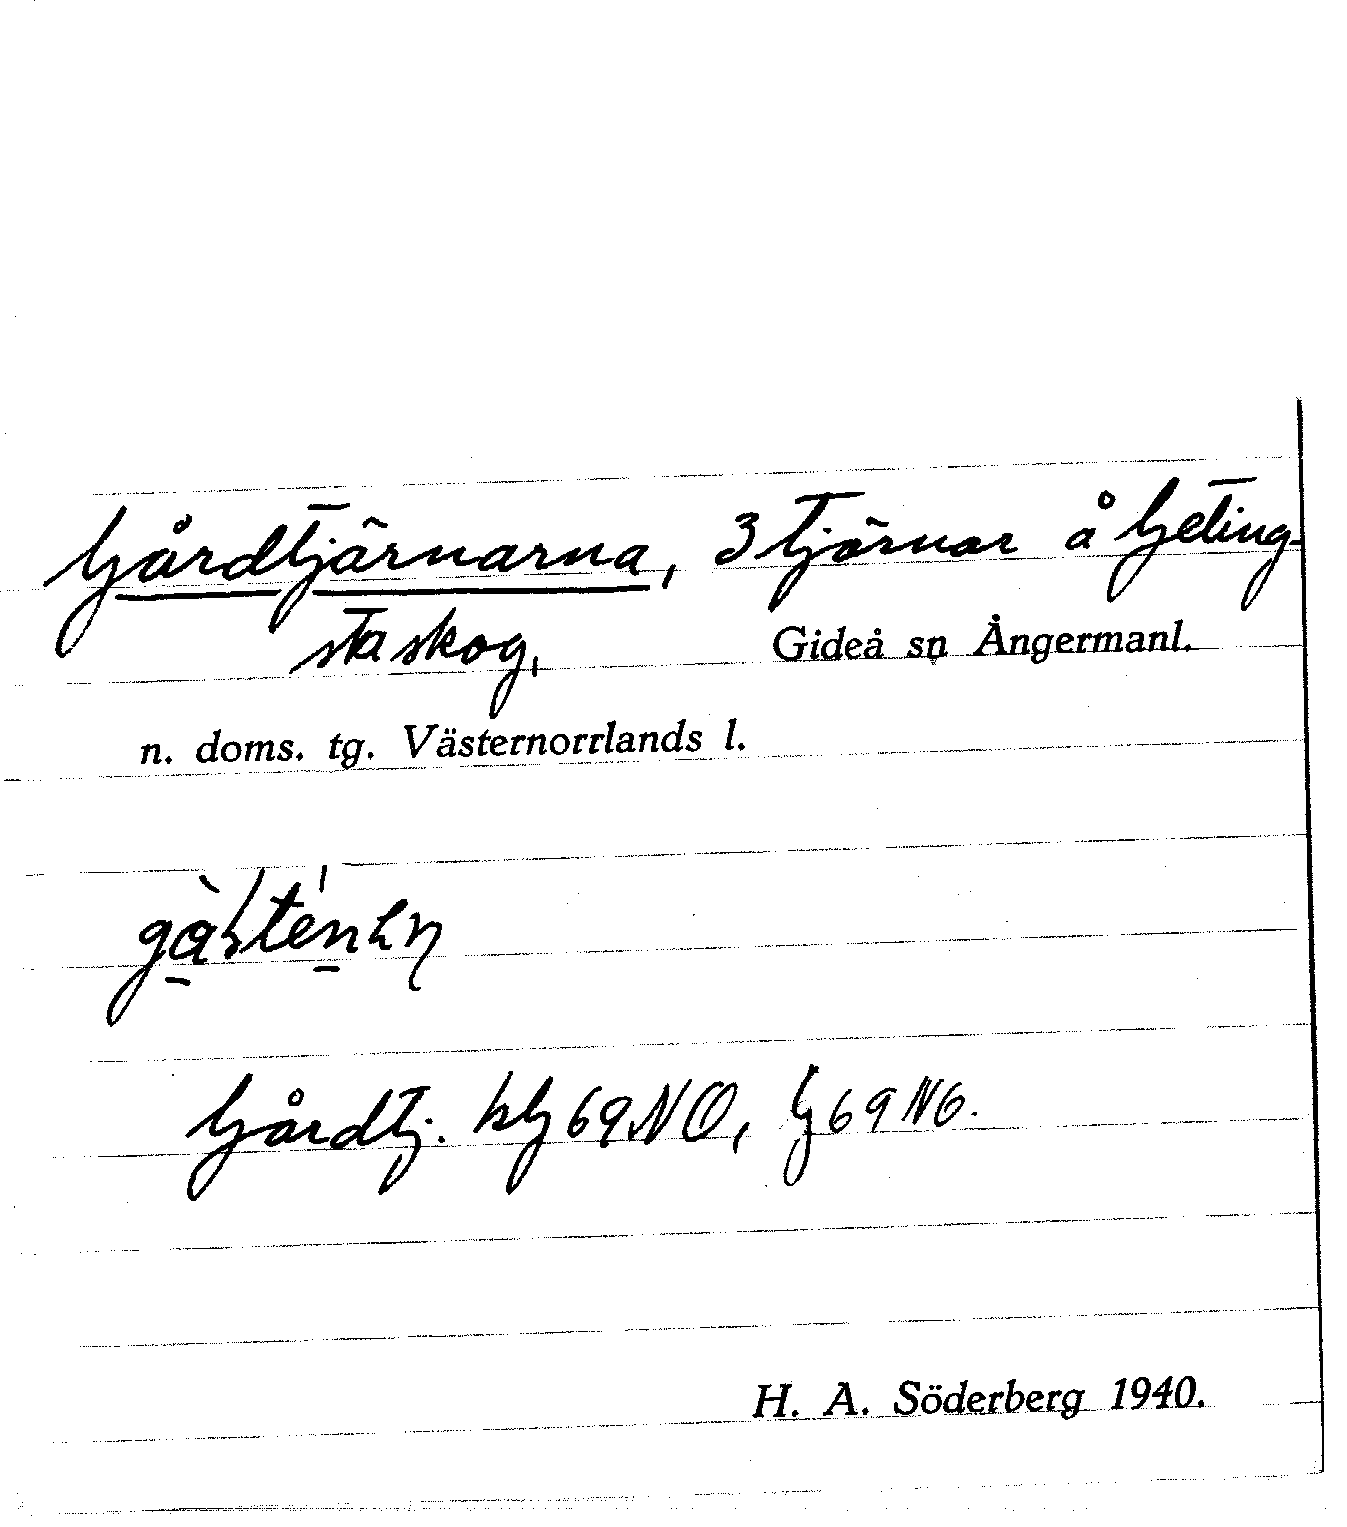 Gårdtjärnarna, 3 tjärnar å Geting-
sta skog,
Gideå sn Ångermanl.
n. doms. tg. Västernorrlands l.
Gårdtj. hG69NO, G69NO.
H. A. Söderberg 1940.